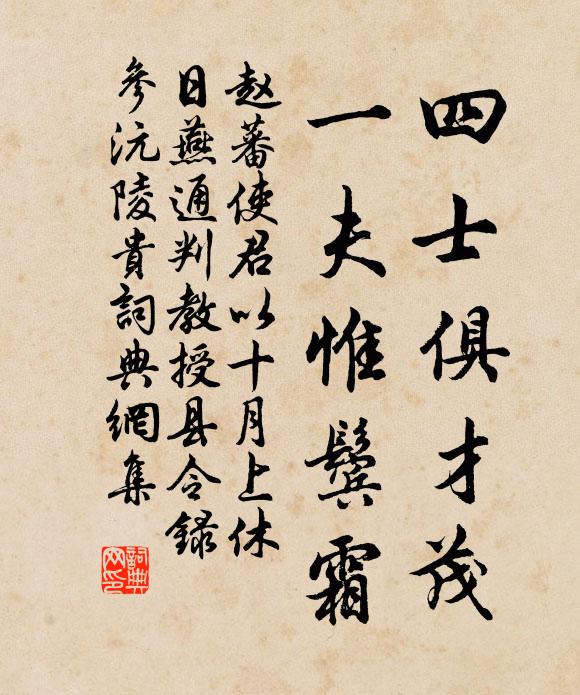 四士俱才茂
一夫惟鬓霜
赵蕃使君以十月上休
日燕通判教授县令録
參沅陵貴詞典網集
詞典
网印